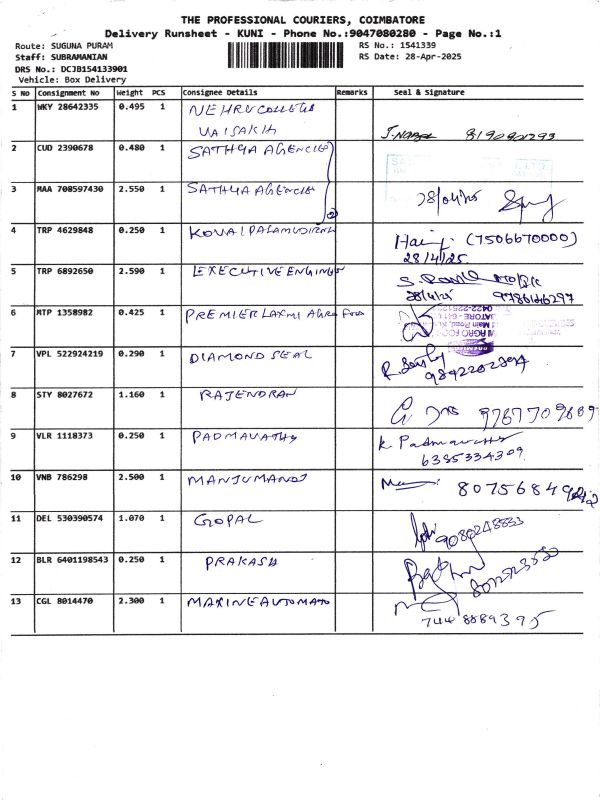 THE PROFESSIONAL COURIERS, COIMBATORE
Delivery Runsheet - KUNI - Phone No.:9047080280 - Page No.:1
Route: SUGUNA PURAM
RS No.: 1541339
Staff: SUBRAMANIAN
RS Date: 28-Apr-2025
DRS No.: DCJB154133901
Vehicle: Box Delivery
S No Consignment No Weight PCS Consignee Details Remarks Seal & Signature
1 WKY 28642335 0.495 1 NEHRU COLLEGE
VAISAKH
2 CUD 2390678 0.480 1 SATHYA AGENCIES
3 MAA 708597430 2.550 1 SATHYA AGENCIES 28/04/25
4 TRP 4629848 0.250 1 KOVAI PALAMUDIRNL (7506670000)
28/4/25
5 TRP 6892650 2.590 1 EXECUTIVE ENGINEER
28/4/25
6 MTP 1358982 0.425 1 PREMIER LAXMI AGRO FOOD
7 VPL 522924219 0.290 1 DIAMOND SEAL
8 STY 8027672 1.160 1 RAJENDRAN
9 VLR 1118373 0.250 1 PADMAVATHY K Padmavathy
6385334309
10 VNB 786298 2.500 1 MANJUMANOJ
11 DEL 530390574 1.070 1 GOPAL
9080248833
12 BLR 6401198543 0.250 1 PRAKASH
13 CGL 8014470 2.300 1 MARINE AUTOMATO